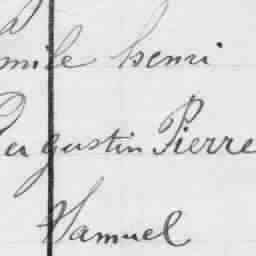 mile henri
Augustin Pierre
Samuel